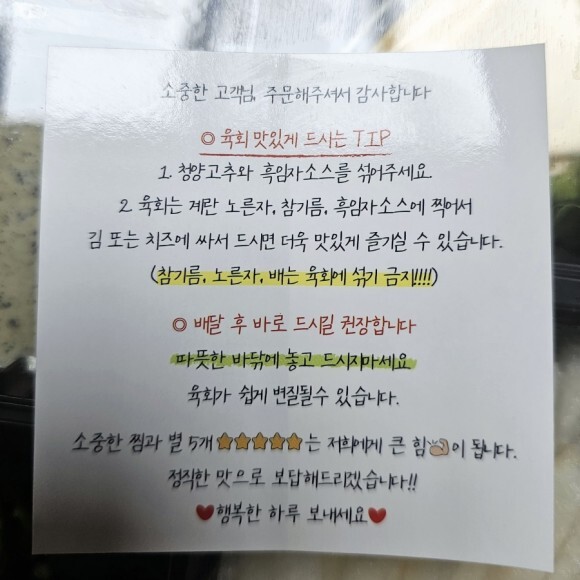 소중한 고객님, 주문해주셔서 감사합니다
◎ 육회 맛있게 드시는 TIP
1. 청양고추와 흑임자소스를 섞어주세요.
2. 육회는 계란 노른자, 참기름, 흑임자소스에 찍어서
김 또는 치즈에 싸서 드시면 더욱 맛있게 즐기실 수 있습니다.
(참기름, 노른자, 배는 육회에 섞기 금지!!!!)
◎ 배달 후 바로 드시길 권장합니다
따뜻한 바닦에 놓고 드시지마세요
육회가 쉽게 변질될수 있습니다.
소중한 찜과 별 5개 ⭐⭐⭐⭐⭐는 저희에게 큰 힘💪이 됩니다.
정직한 맛으로 보답해드리겠습니다!!
❤️행복한 하루 보내세요❤️